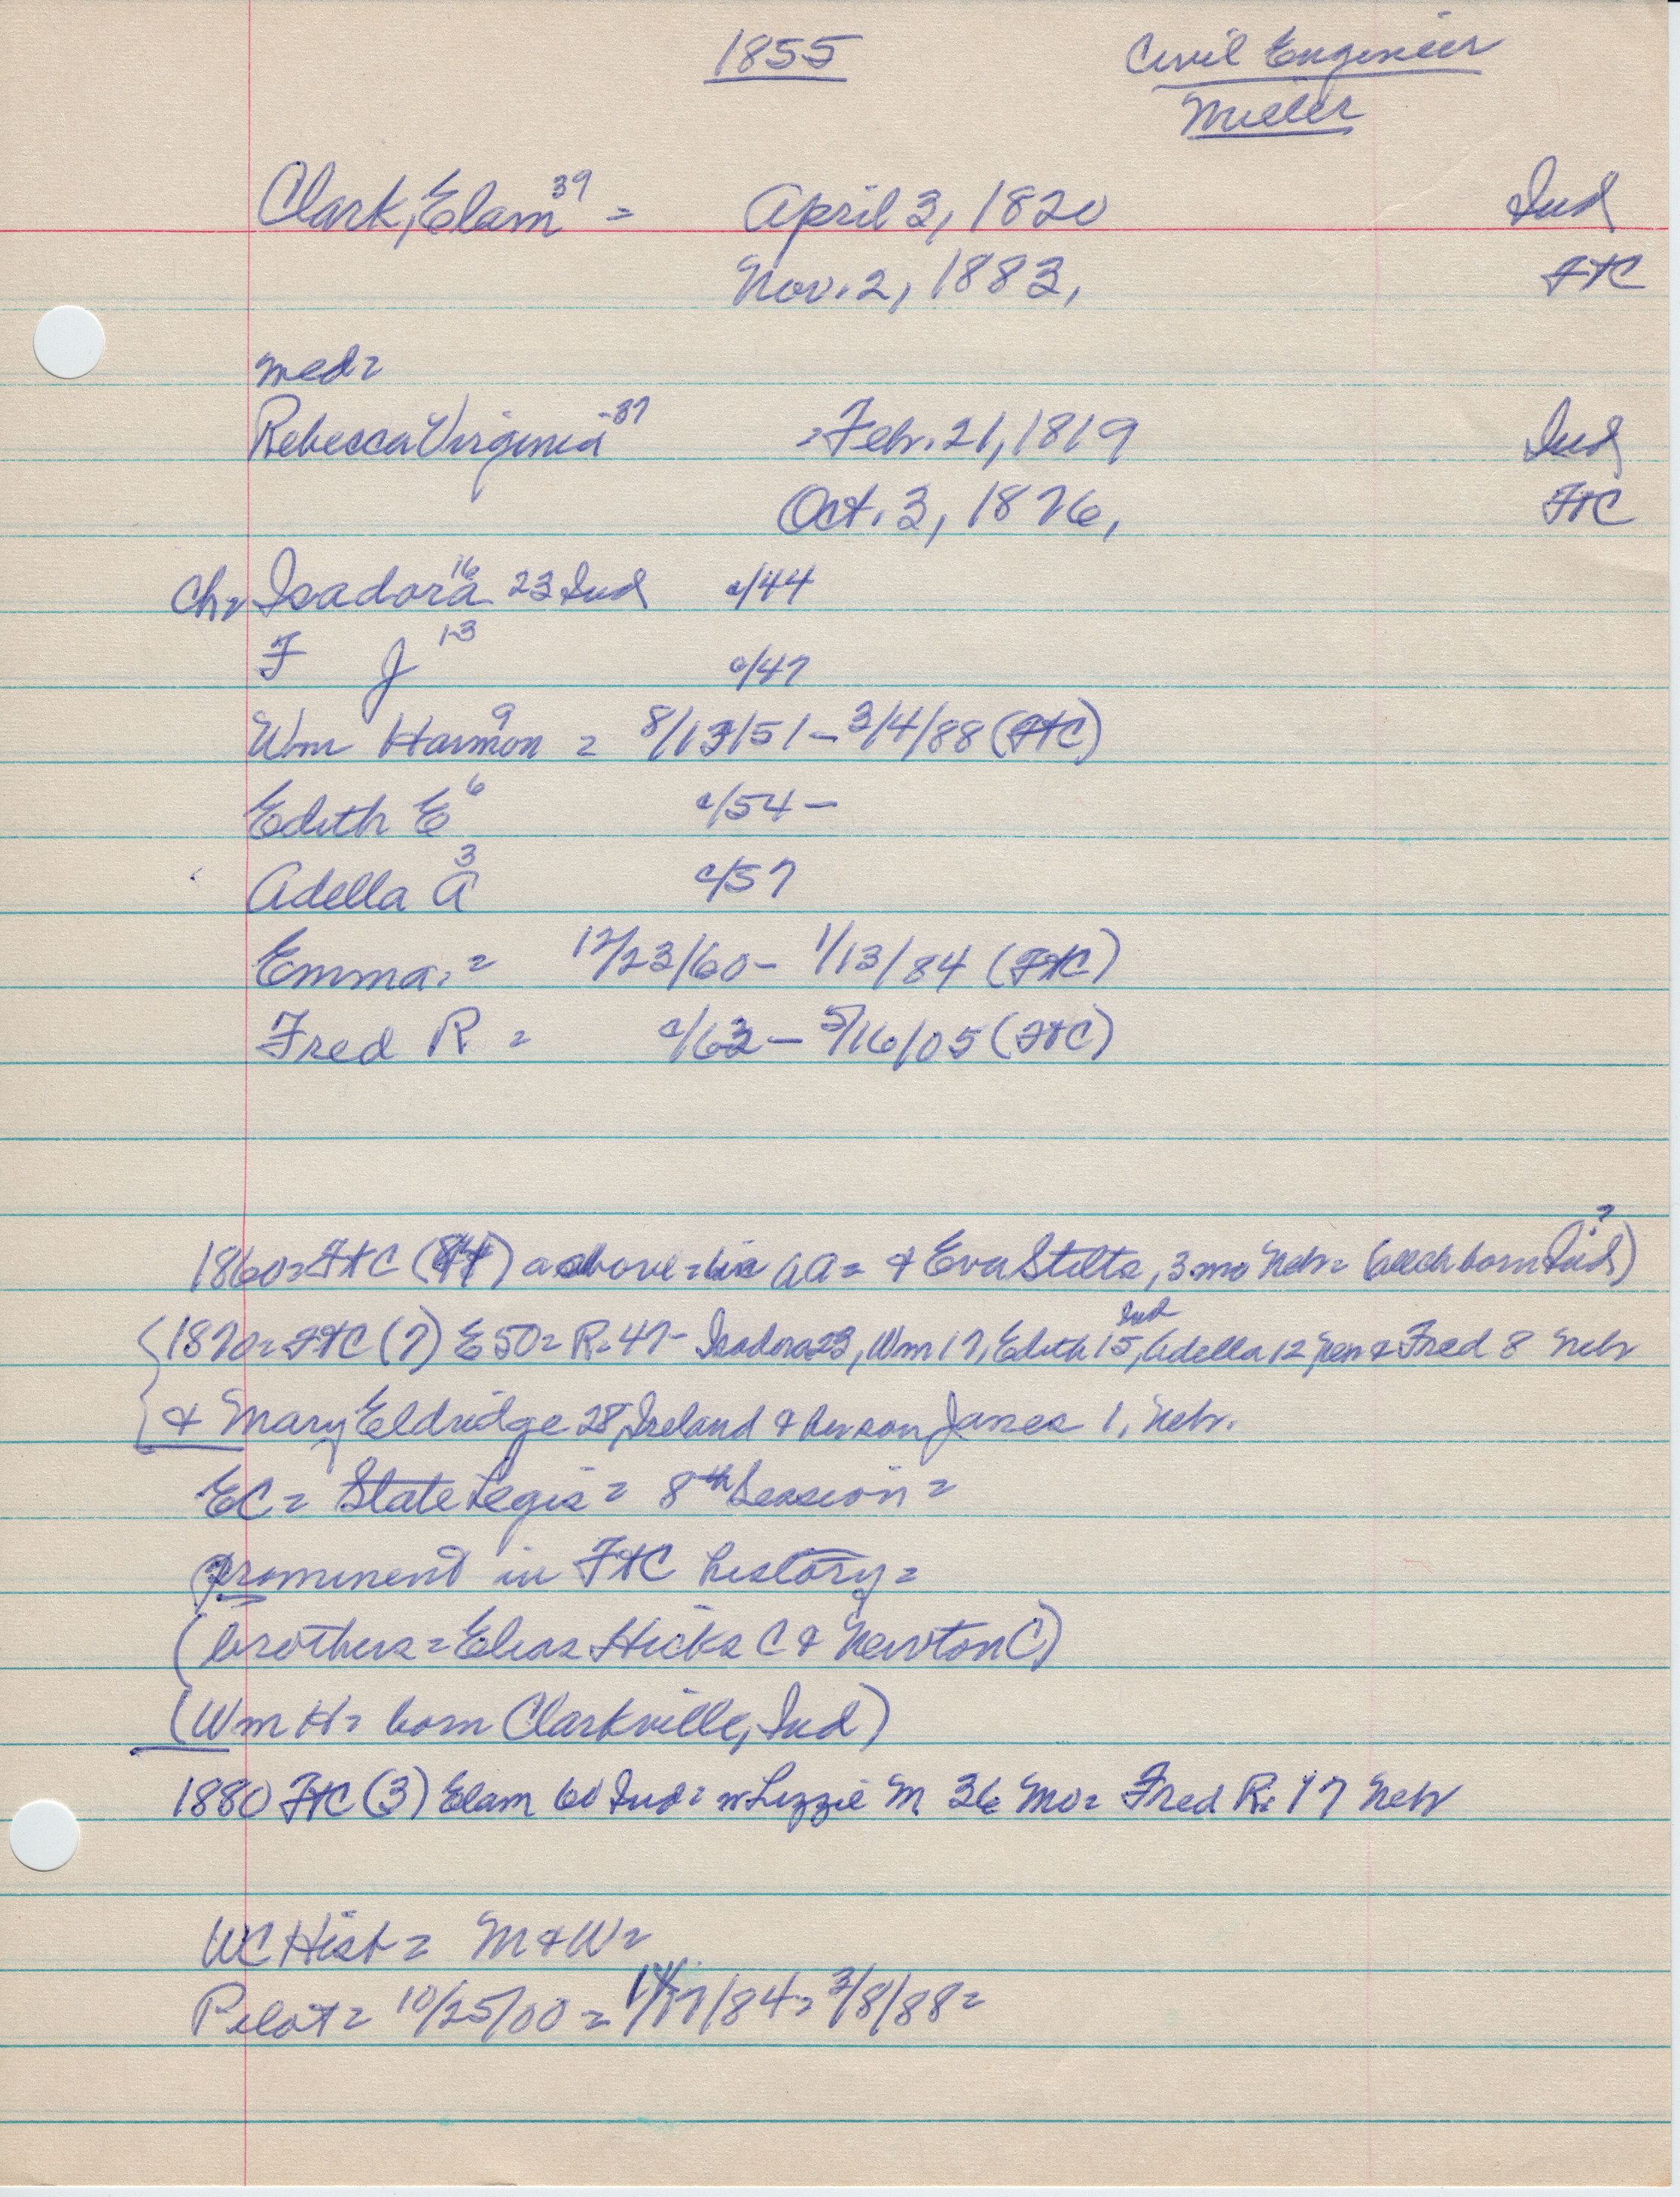 1855 Civil Engineer
Miller
Clark, Elam 39 = April 3, 1820 Ind
Nov. 2, 1883, FtC
med=
Rebecca Virginia 37 = Feb. 21, 1819 Ind
Oct. 3, 1876, FtC
Ch= Isadora 16 23 Ind c/44
F J 13 c/47
Wm Harmon 9 = 8/13/51 - 3/4/88 (FtC)
Edith E 6 c/54 -
Adella A 3 c/57
Emma. = 12/23/60 - 1/13/84 (FtC)
Fred R = c/63 - 5/16/05 (FtC)
1860= FtC above = & Eva Stilts, 3 mo Neb= born Ind) ?
1870= FtC (7) E 50= R= 47- Isadora 23, Wm 17, Edith 15, Ind Adella 12 & Fred 8 Neb
& Mary Eldridge 28, Ireland & her son James 1, Neb.
EC= State Legis= 8th Session=
prominent in FtC history=
(brothers= Elias Hicks C & Newton C)
(Wm H= born Clarkville, Ind)
1880 FtC (3) Elam 60 Ind= w Lizzie M 36 Mo= Fred R= 17 Neb
WC Hist= M & W=
Pilot= 10/25/00 = /84= 3/8/88=